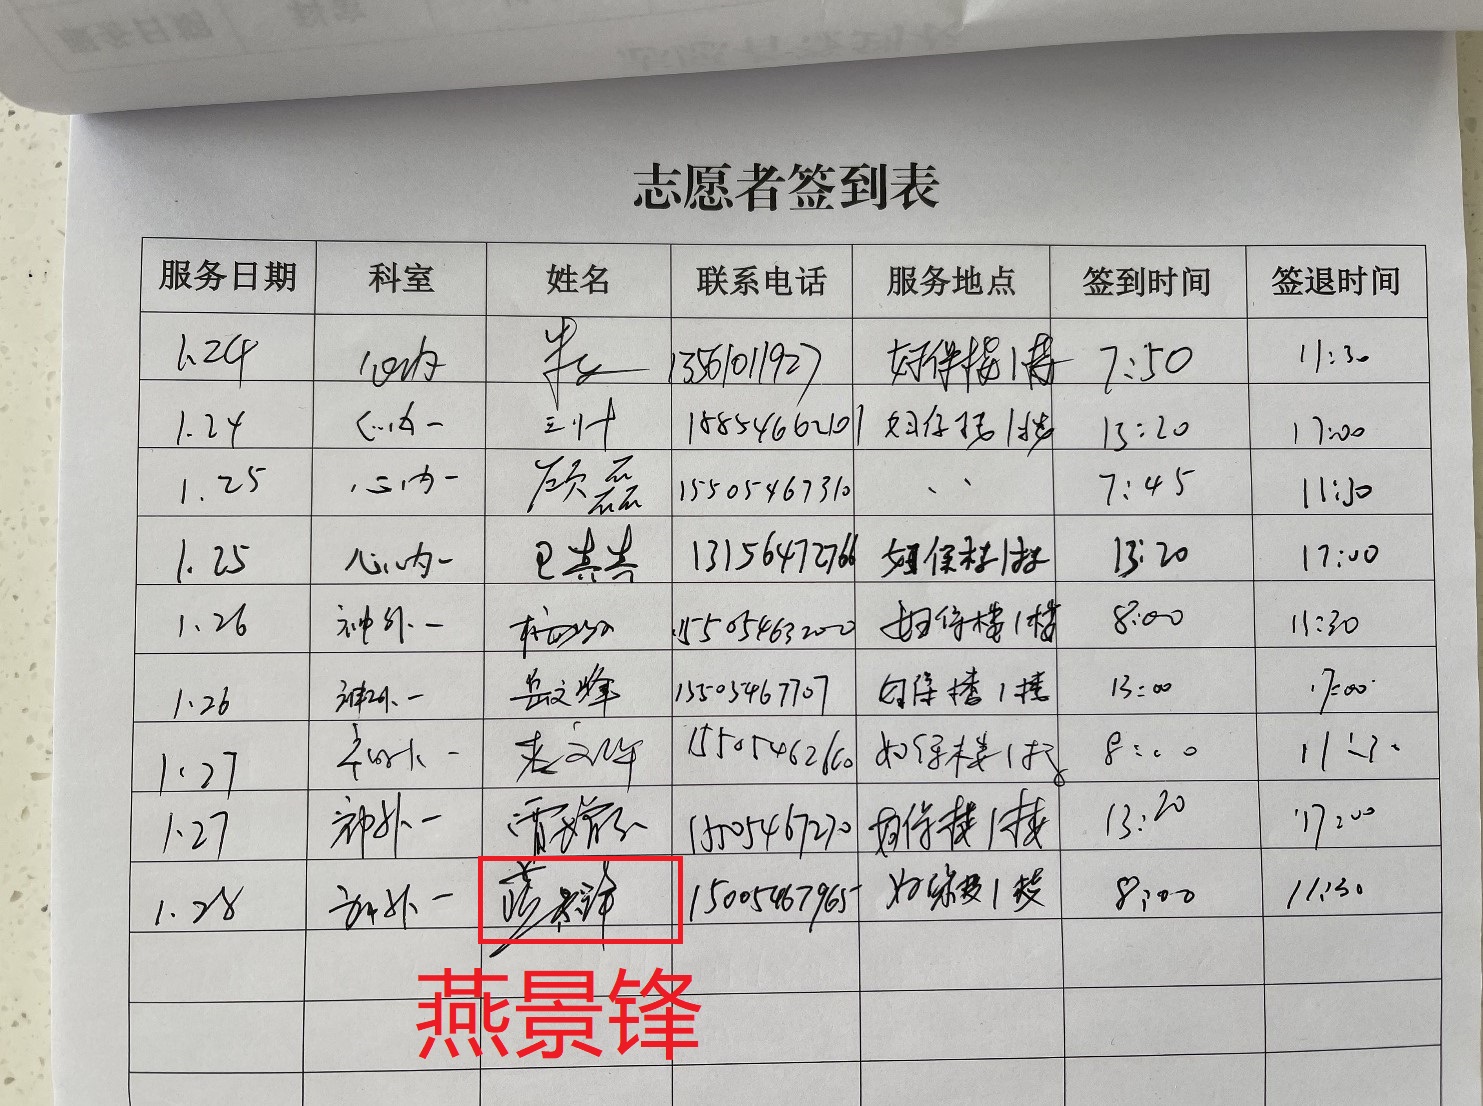 志愿者签到表
服务日期 科室 姓名 联系电话 服务地点 签到时间 签退时间
1.24 心内 13561011927 妇保楼1楼 7:50 11:30
1.24 心内一 18854662101 妇保楼1楼 13:20 17:00
1.25 心内一 顾磊 15505467310 、、 7:45 11:30
1.25 心内一 13156472766 妇保楼1楼 13:20 17:00
1.26 神外一 15505463200 妇保楼1楼 8:00 11:30
1.26 神外一 岳文峰 15505467707 妇保楼1楼 13:00 17:00
1.27 神外一 15505462660 妇保楼1楼 8:00 11:30
1.27 神外一 15505467270 妇保楼1楼 13:20 17:00
1.28 神外一 燕景锋 15005467965 妇保楼1楼 8:00 11:30
燕景锋